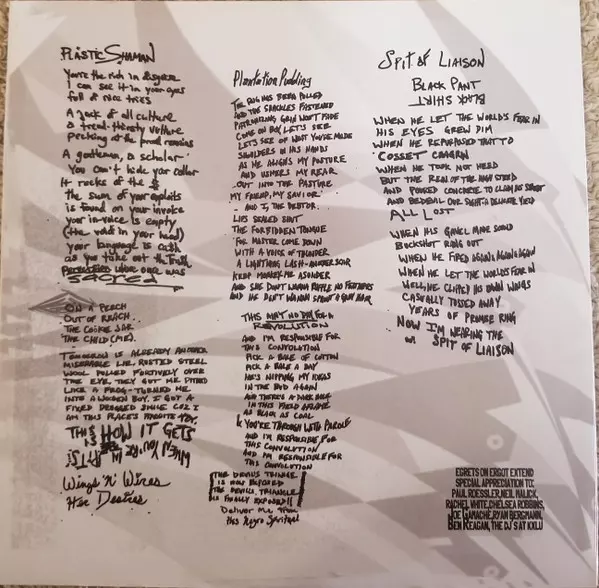 PLASTIC SHAMAN
You're the rich in disguise
I can see it in your eyes
full of nice tries
A jack of all culture
a trend-thirsty vulture
pecking at the proud remains
A gentleman, a scholar
You can't hide your collar
It reeks of the $
the sum of your exploits
is found on your invoice
your in-voice is empty
(the void in your head)
your language is cash
as you take out the trash
Perfection where one was
sacred
ON A PERCH
OUT OF REACH
THE COOKIE JAR
THE CHILD (ME).
TOMORROW IS ALREADY ANOTHER
MISERABLE LIE. RUSTED STEEL
WOOL PULLED FURTIVELY OVER
THE EYE, THEY GOT ME PITHED
LIKE A FROG-TURNED ME
INTO A WOODEN BOY. I GOT A
FIXED DRUGGED SMILE COZ I
AM THIS RACE'S FAVORITE TOY.
THIS IS HOW IT GETS
WHEN YOU'RE IN ARTS!
Wings 'N' Wires
Her Desires
Plantation Pudding
THE RUG HAS BEEN PULLED
AND THE SHACKLES FASTENED
PATRONIZING GRIN WON'T FADE
COME ON BOY, LET'S SEE
LET'S SEE OF WHAT YOU'RE MADE
SHOULDERS IN HIS HANDS
AS HE ALIGNS MY POSTURE
AND USHERS MY REAR
OUT INTO THE PASTURE
MY FRIEND, MY SAVIOR
AND I, THE DEBTOR.
LIPS SEALED SHUT
THE FORBIDDEN TONGUE
FOR MASTER COME DOWN
WITH A VOICE OF THUNDER
A LIGHTNING LASH-ANOTHER SCAR
KEEP MONKEY ME ASUNDER
AND SHE DON'T WANNA RUFFLE NO FEATHERS
AND HE DON'T WANNA SPROUT A GRAY HAIR
THIS MAY NO DAY FOR A
REVOLUTION
AND I'M RESPONSIBLE FOR
THIS CONVOLUTION
PICK A BALE OF COTTON
PICK A BALE A DAY
HE'S NIPPING MY IDEAS
IN THE BUD AGAIN
AND THERE'S A DARK
IN THIS FIELD AFLAME
AS BLACK AS COAL
& YOU'RE THROUGH WITH PAROLE
AND I'M RESPONSIBLE FOR
THIS CONVOLUTION
AND I'M RESPONSIBLE FOR
THIS CONVOLUTION
THE DEVIL'S TRIANGLE
IS NOW EXPOSED
THE DEVIL'S TRIANGLE
IS FINALLY EXPOSED!!
Deliver Me from
this Negro Spiritual
SPIT OF LIAISON
BLACK PANT
BLACK SHIRT
WHEN HE LET THE WORLD'S FEAR IN
HIS EYES GREW DIM
WHEN HE REPURPOSED THAT TO
COSSET CHAGRIN
WHEN HE TOOK NOT HEED
BUT THE REIN OF THE HIGH STEED
AND POURED CONCRETE TO CLAIM HIS STREET
AND BEDEVIL OUR SIGHT-A DELICATE YIELD
ALL LOST
WHEN HIS GAVEL MADE SOUND
BUCKSHOT RING OUT
WHEN HE FIRED AGAIN & AGAIN & AGAIN
WHEN HE LET THE WORLD'S FEAR IN
WELL, HE CLIPPED HIS OWN WINGS
CASUALLY TOSSED AWAY
YEARS OF PRIMER RING
NOW I'M WEARING THE
SPIT OF LIAISON
EGRETS ON ERGOT EXTEND
SPECIAL APPRECIATION TO:
PAUL ROESSLER, NEIL MALICK,
RACHEL WHITE, CHELSEA ROBBINS,
JOE GAMACHE, RYAN BERGMANN,
BEN REAGAN, THE DJ'S AT KXLU